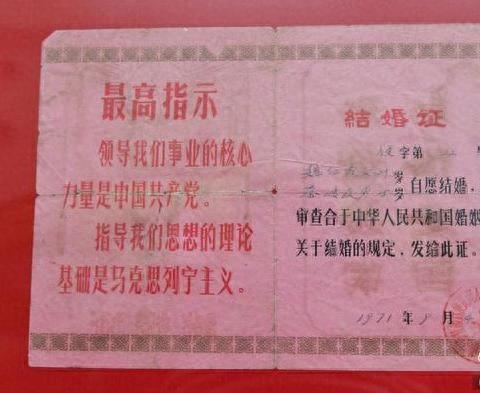 最高指示
领导我们事业的核心
力量是中国共产党。
指导我们思想的理论
基础是马克思列宁主义。
結婚证
字第
岁
岁自愿结婚，
审查合于中华人民共和国婚姻
关于结婚的规定，发给此证。
1971年9月